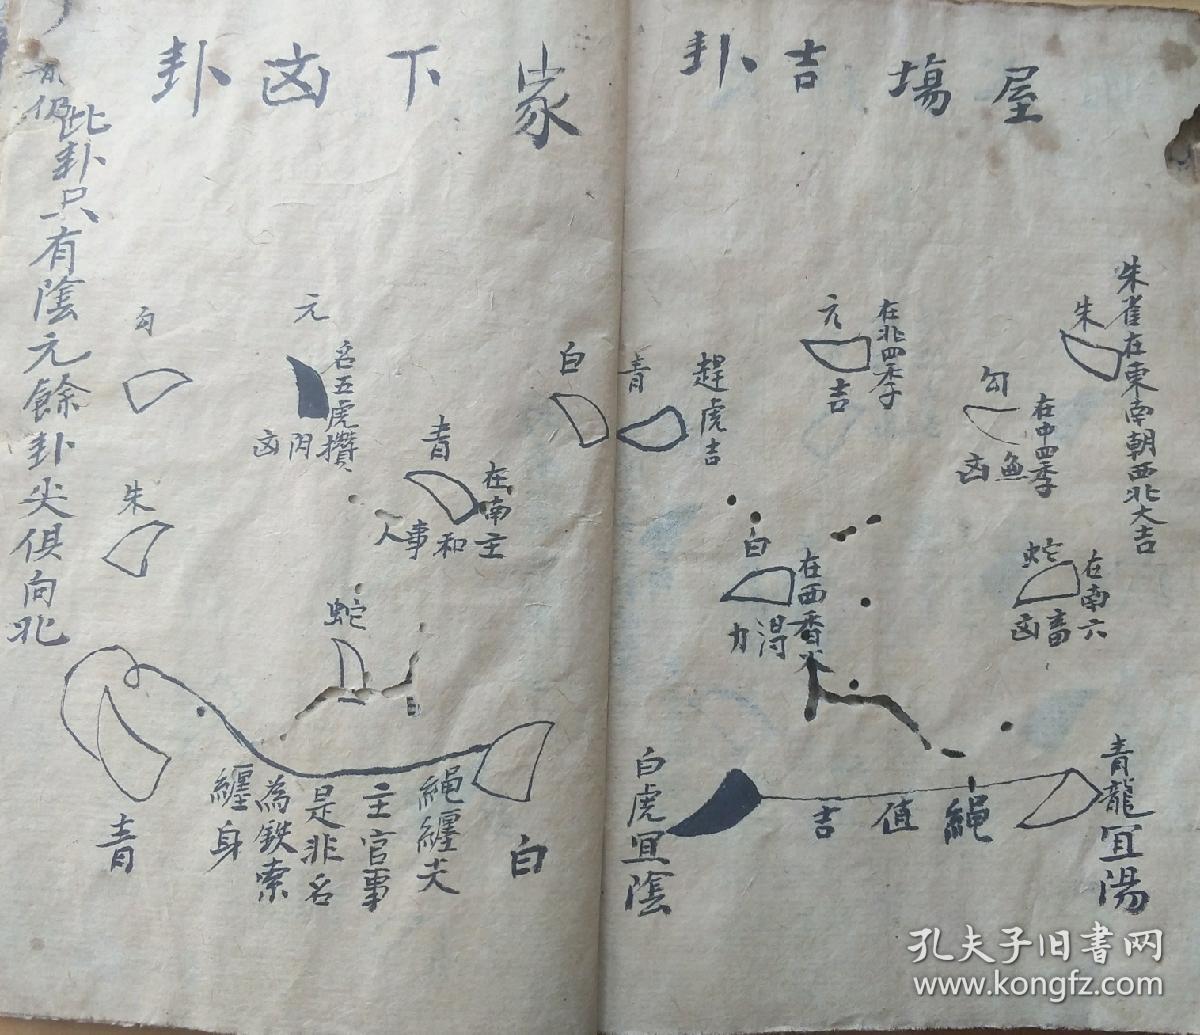 屋塲吉卦
朱雀在東南朝西北大吉
朱
勾
在中四季
凶
在南六
畜凶
蛇
元
在北四季
吉
趕虎吉
青
白
在西香火
得力
青龍宜陽
繩值吉
白虎宜陰
家下凶卦
白
元
名五虎攢
凶
勾
青
在南主
人事和
朱
蛇
白
繩纏夫
主官事
是非名
為鉄索
纏身
青
此卦只有陰元餘卦尖俱向北
孔夫子旧书网
www.kongfz.com